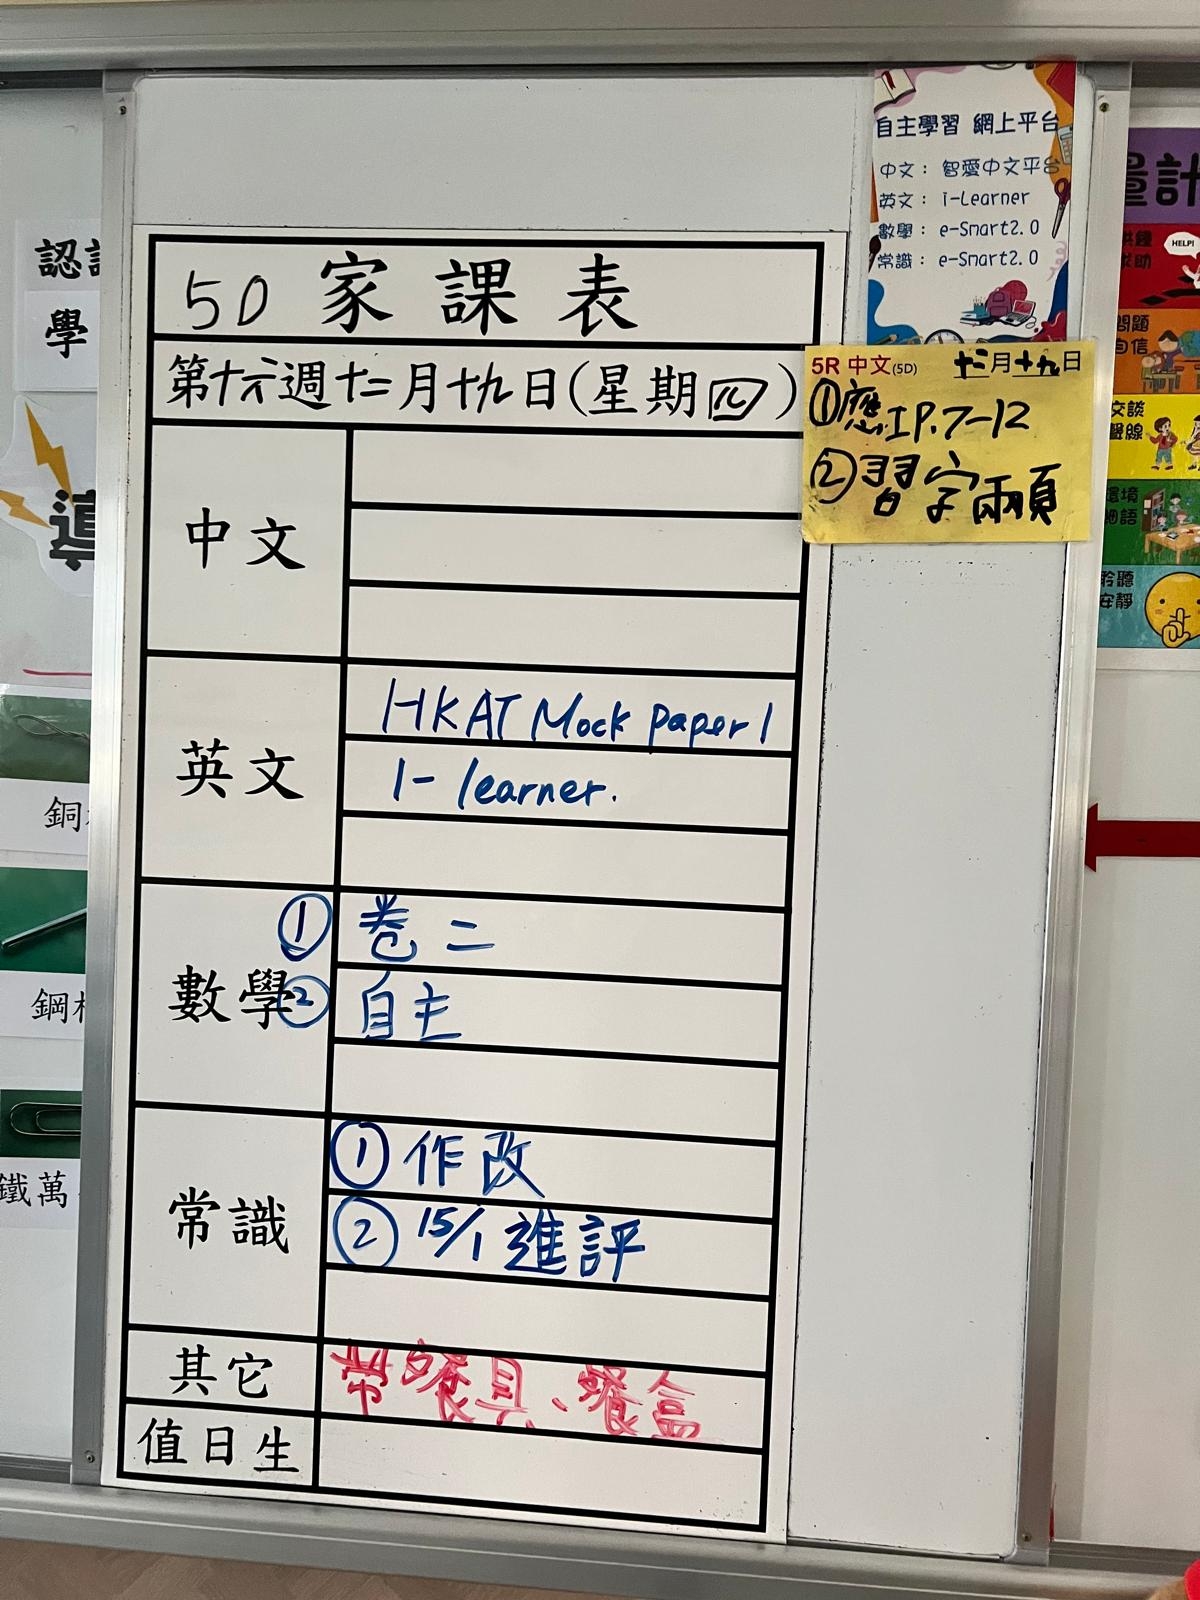 自主學習 網上平台
中文： 智愛中文平台
英文： i-Learner
數學： e-Smart2.0
常識： e-Smart2.0
5D 家課表
第十六週十二月十九日(星期四)
5R 中文(5D) 十二月十九日
①應I P.7-12
②習字兩頁
中文
英文
HKAT Mock paper 1
I-learner.
數學
① 卷二
② 自主
常識
① 作改
② 15/1 進評
其它
帶餐具、餐盒
值日生
認
學
導
銅
鋼
鐵萬
量計
HELP!
求助
問題
自信
交談
聲線
環境
細語
聆聽
安靜